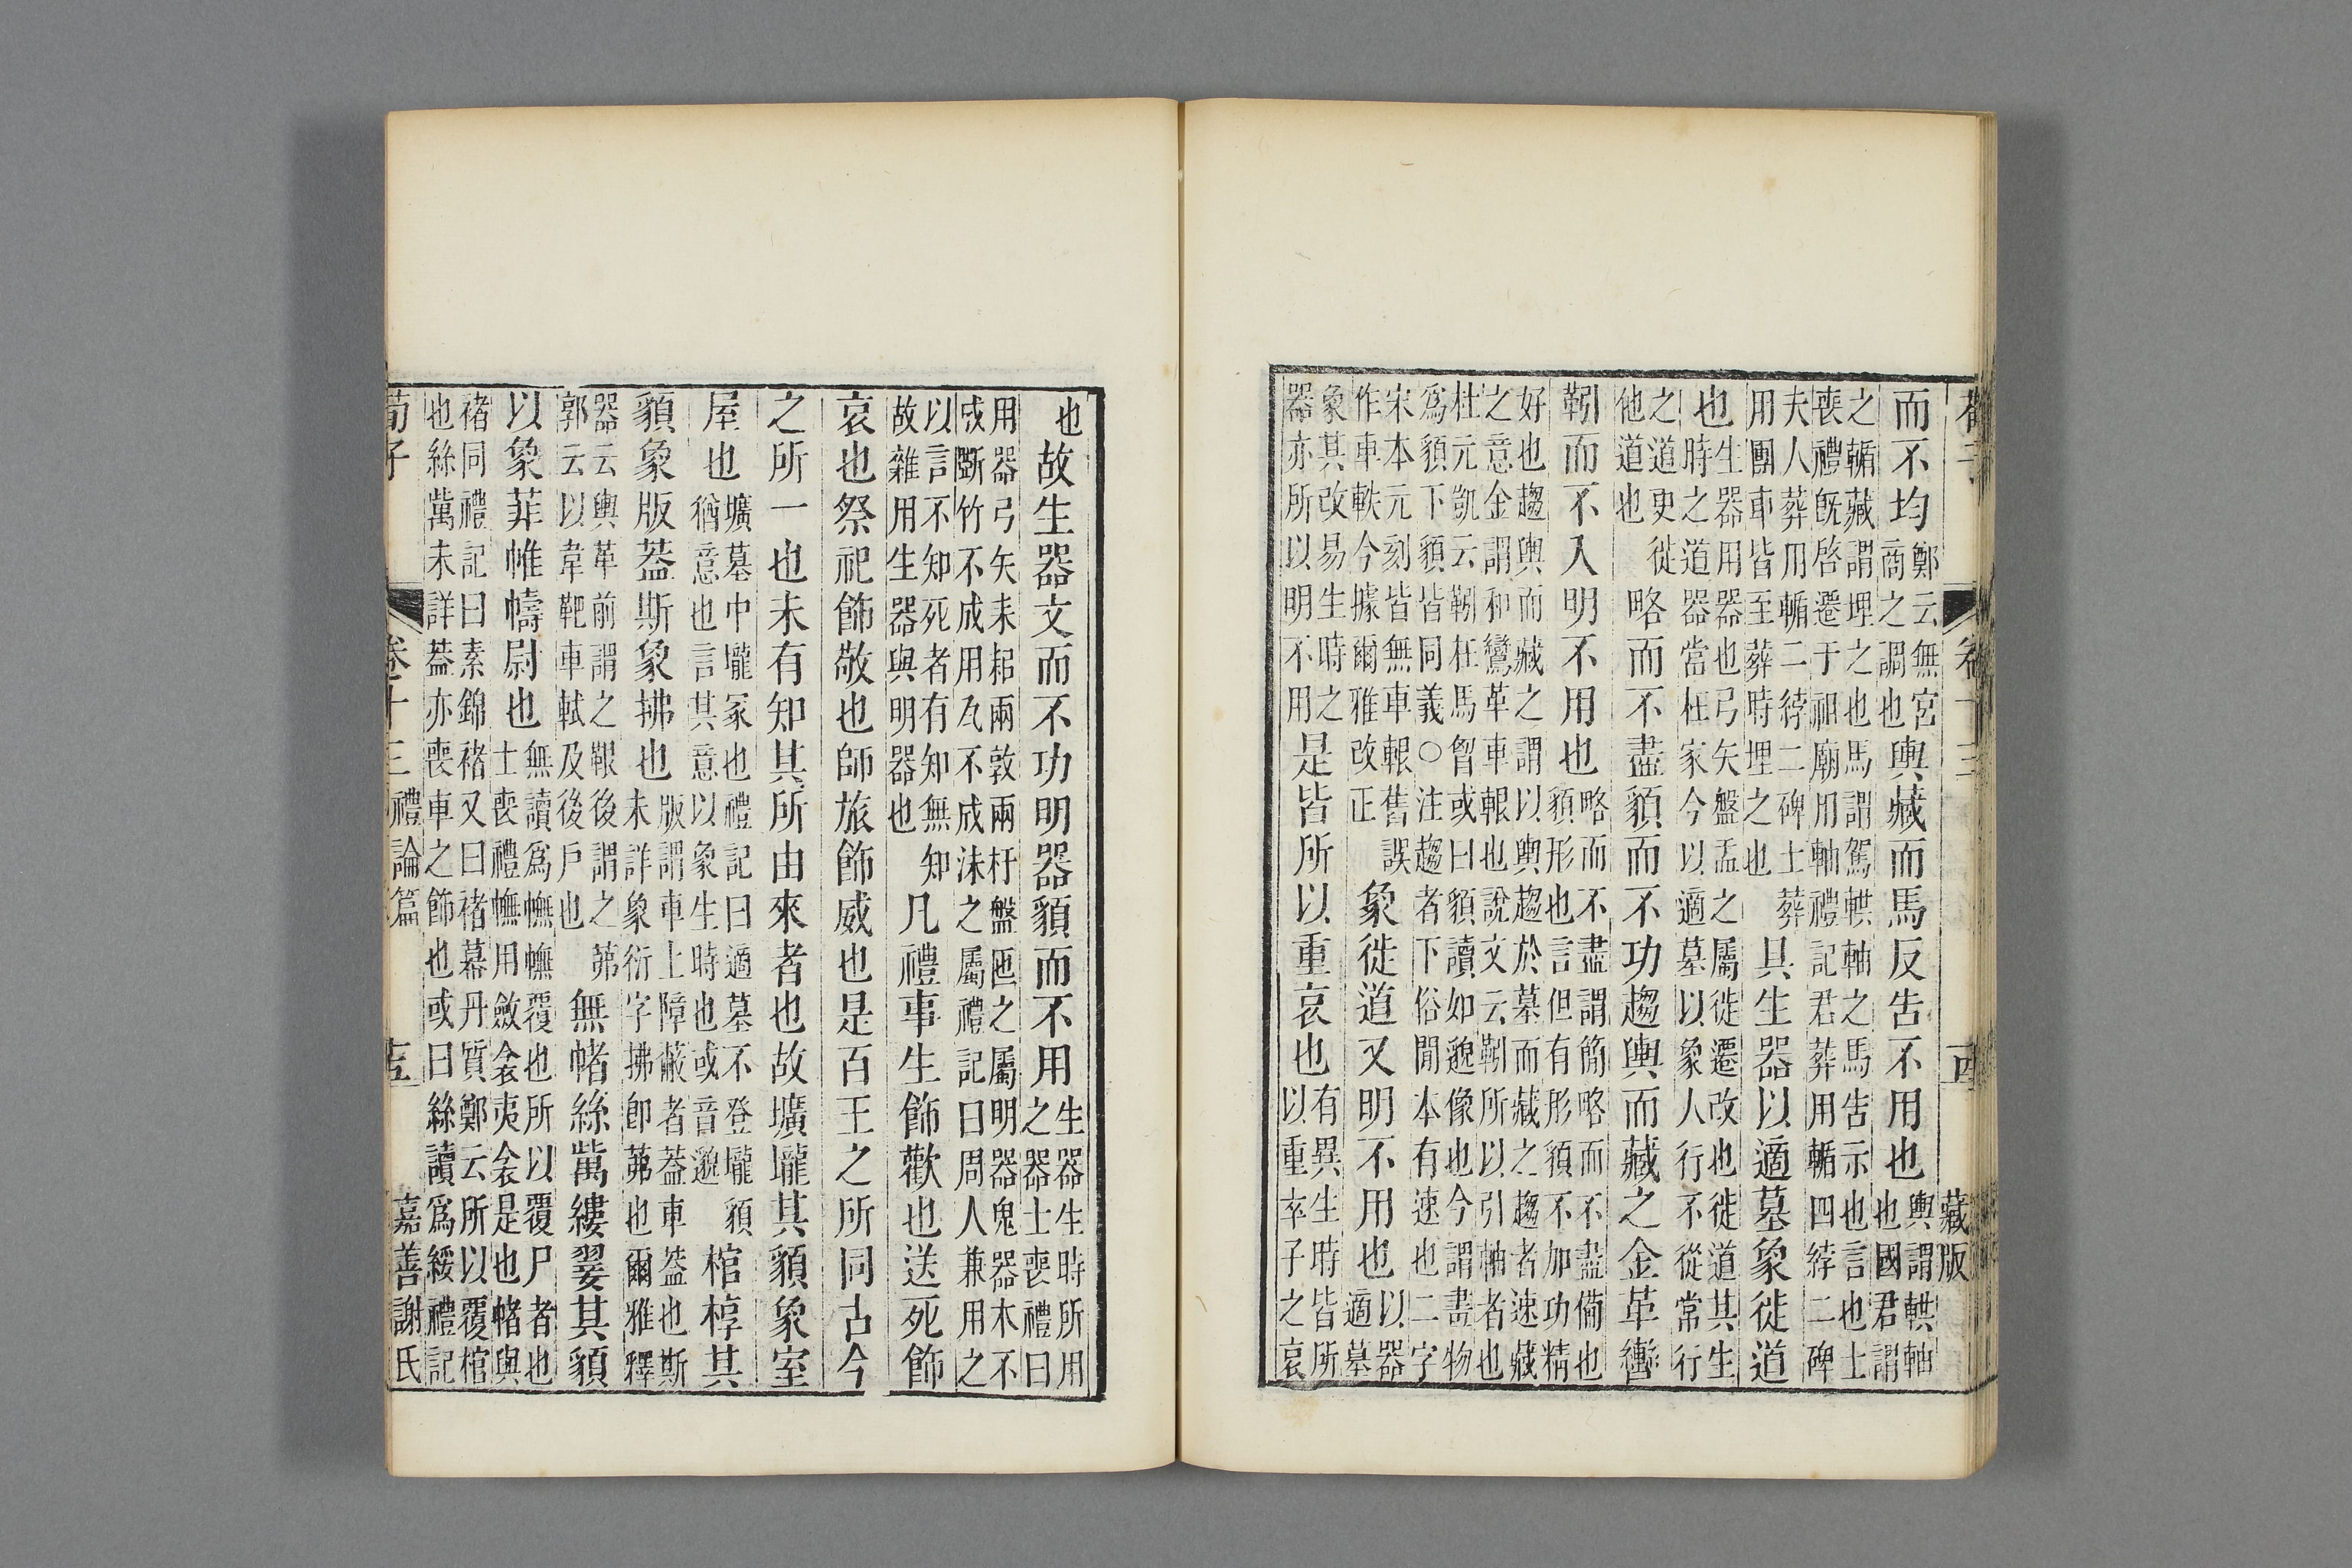 荀子 卷十三 十四 藏版
而不均
鄭云無宮
商之調也
輿藏而馬反告不用也
輿謂輁軸
也國君謂
之輴藏謂埋之也馬謂駕輁軸之馬告示也言也士
喪禮旣啓遷于祖廟用軸禮記君葬用輴四綍二碑
夫人葬用輴二綍二碑士葬
用團車皆至葬時埋之也
具生器以適墓象徙道
也
生器用器也弓矢盤盂之屬徙遷改也徙道其生
時之道器當在家今以適墓以象人行不從常行
之道更徙
他道也
略而不盡貌而不功趨輿而藏之金革轡
靷而不入明不用也
略而不盡謂簡略而不盡備也
貌形也言但有形貌不加功精
好也趨輿而藏之謂以輿趨於墓而藏之趨者速藏
之意金謂和鸞革車鞎也說文云靷所以引軸者也
杜元凱云靷在馬胷或曰貌讀如邈像也今謂畫物
爲貌下貌皆同義○注趨者下俗閒本有速也二字
宋本元刻皆無車鞎舊誤
作車軼今據爾雅改正
象徙道又明不用也
以器
適墓
象其改易生時之
器亦所以明不用
是皆所以重哀也
有異生時皆所
以重孝子之哀
也
故生器文而不功明器貌而不用
生器生時所用
之器士喪禮曰
用器弓矢耒耜兩敦兩杅盤匜之屬明器鬼器木不
成斲竹不成用瓦不成沬之屬禮記曰周人兼用之
以言不知死者有知無知
故雜用生器與明器也
凡禮事生飾歡也送死飾
哀也祭祀飾敬也師旅飾威也是百王之所同古今
之所一也未有知其所由來者也故壙壠其貌象室
屋也
壙墓中壠冢也禮記曰適墓不登壠貌
猶意也言其意以象生時也或音邈
棺椁其
貌象版蓋斯象拂也
版謂車上障蔽者蓋車蓋也斯
未詳象衍字拂卽茀也爾雅釋
器云輿革前謂之鞎後謂之茀
郭云以韋靶車軾及後戶也
無帾絲歶縷翣其貌
以象菲帷幬尉也
無讀爲幠幠覆也所以覆尸者也
士喪禮幠用斂衾夷衾是也帾與
褚同禮記曰素錦褚又曰褚幕丹質鄭云所以覆棺
也絲歶未詳蓋亦喪車之飾也或曰絲讀爲綏禮記
荀子 卷十三 禮論篇 十五 嘉善謝氏